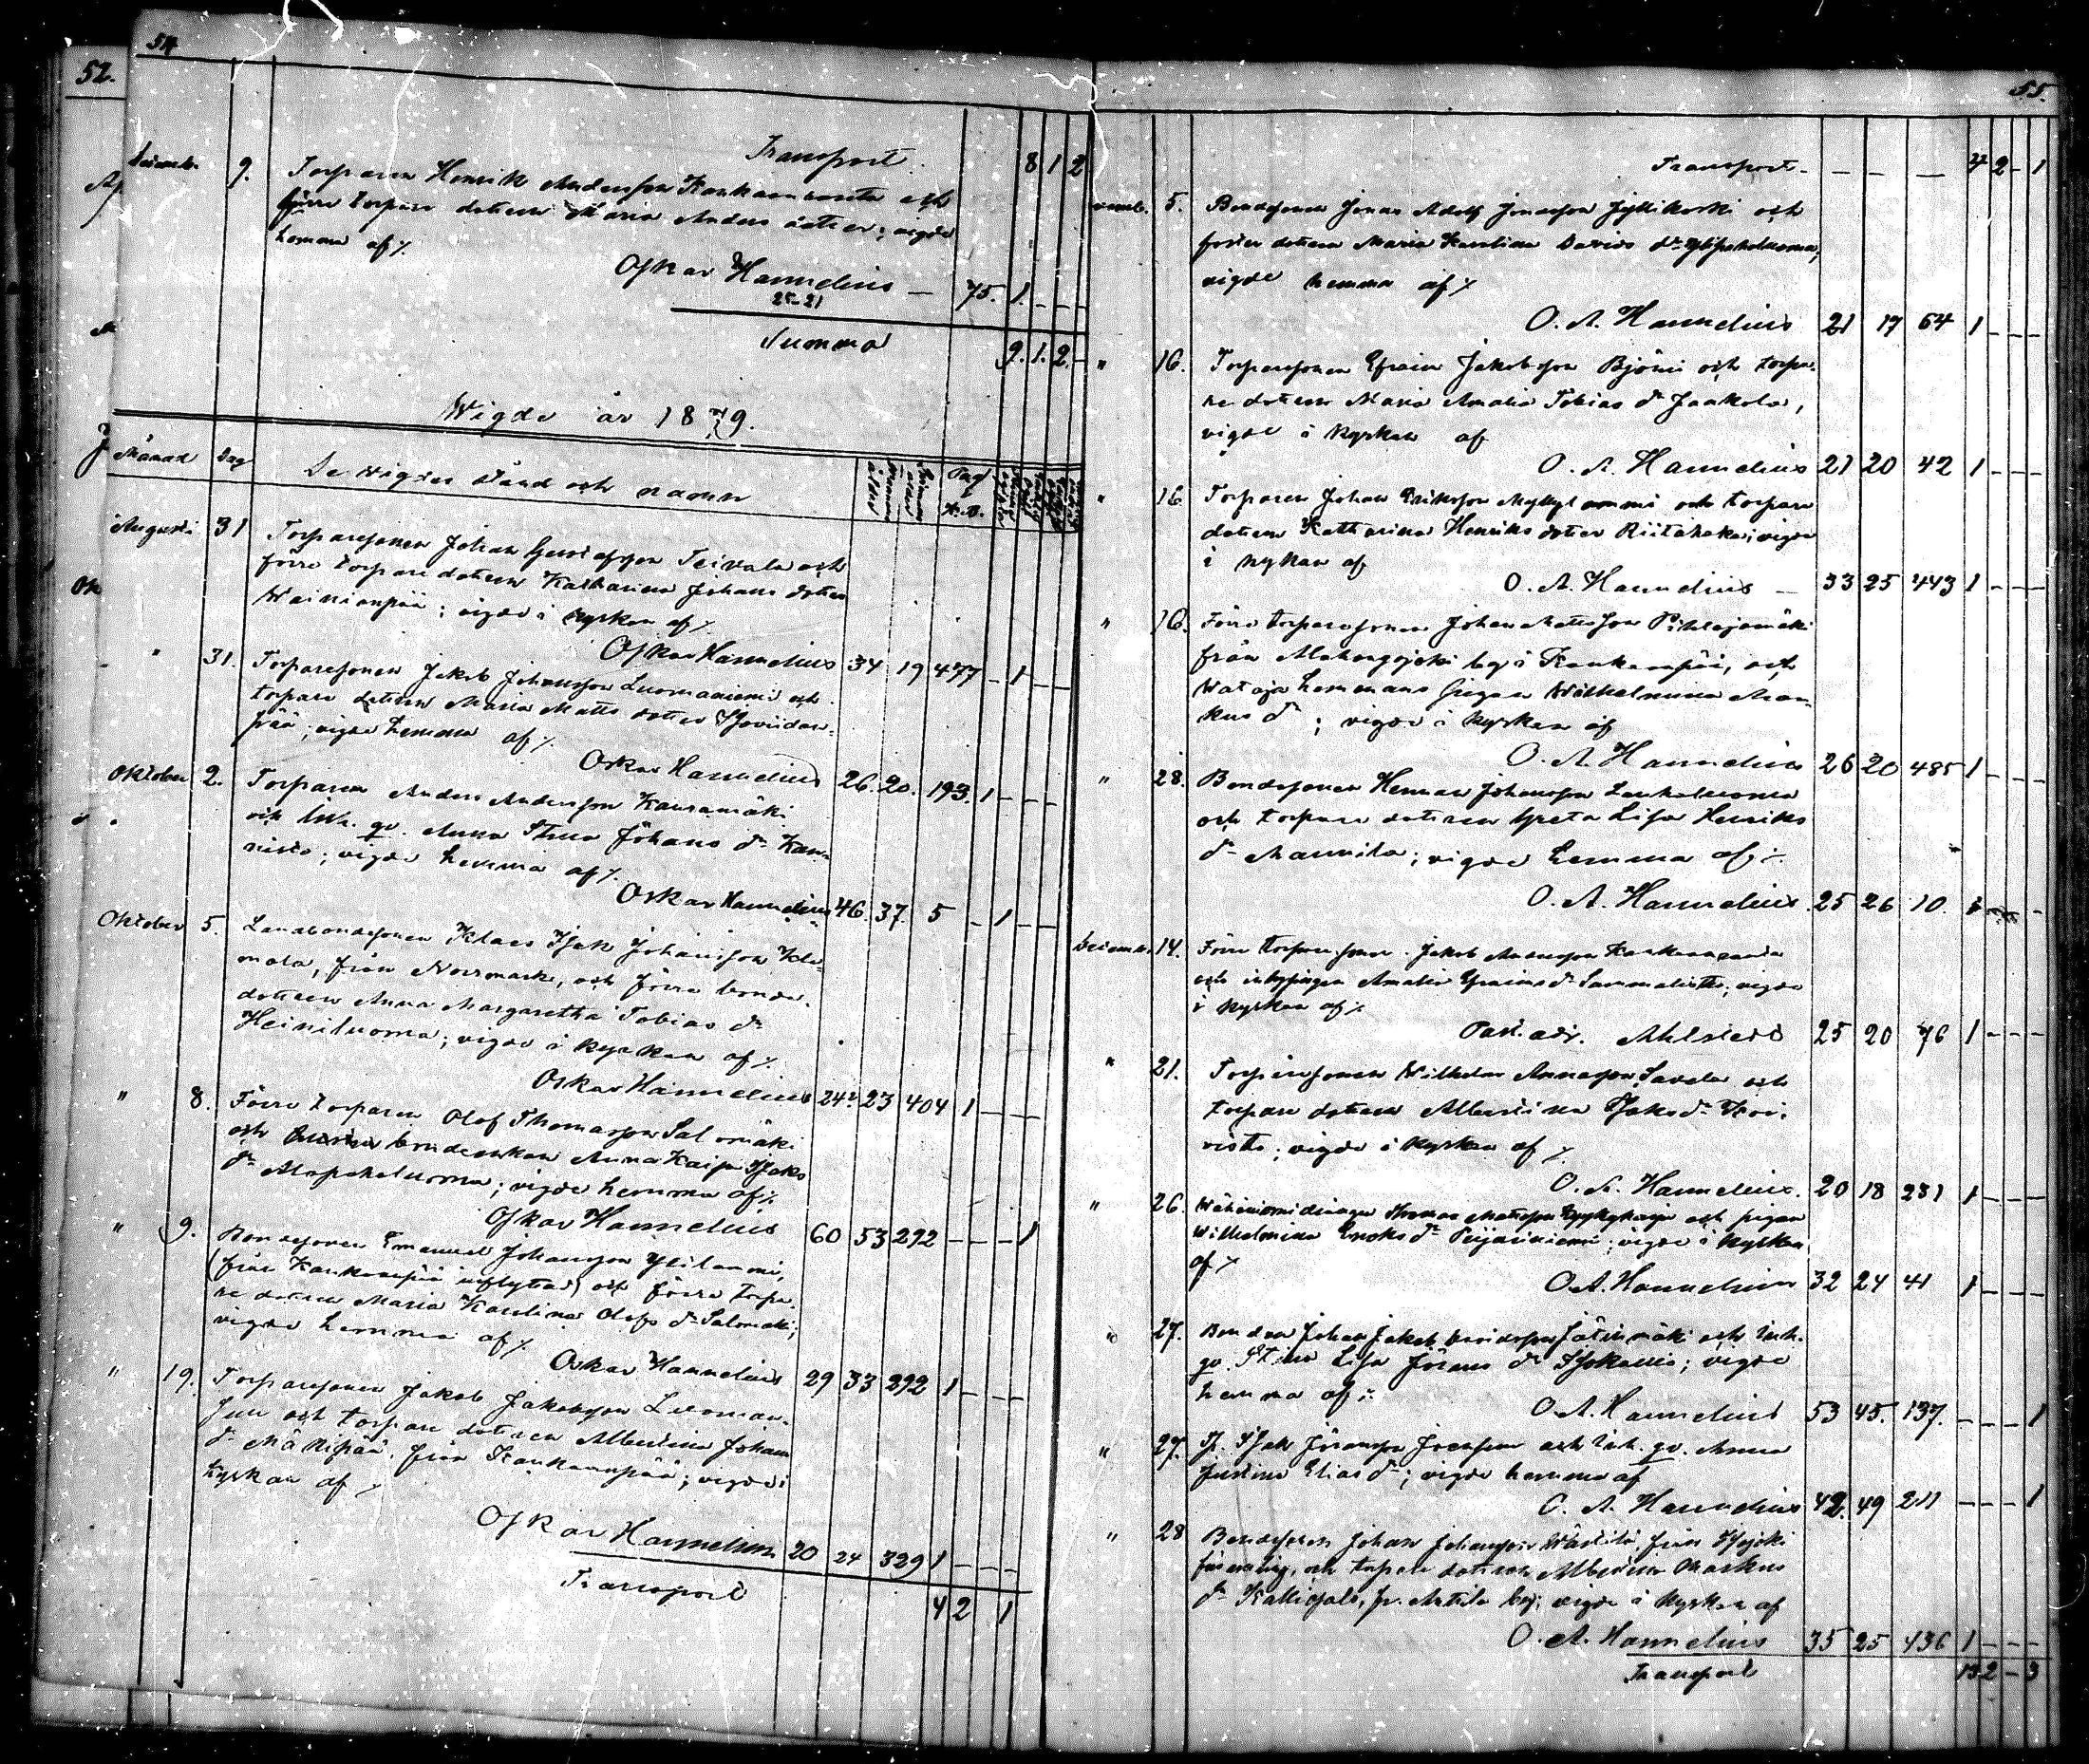 54
52.
Transport 8 1 2
9. Torparen Henrik Andersson Kankaanranta och
förre torpare dottren Maria Anders dotter; vigde
hemma af %.
Oskar Hannelius — 75. 1. – – –
25–21
Summa 9. 1. 2. –
Wigde år 1879.
Månad Dag De wigdes stånd och namn Pag.
Augusti 31 Torparesonen Johan och
förre torpare dottren Katharina Johans dotter
; vigde i kyrkan af %
Oskar Hannelius 34 19 477 – 1 – –
" 31. Torparesonen Jakob Johansson Luomaniemi och
torpare dottren Maria Matts dotter
pää; vigde hemma af %.
Oskar Hannelius 26. 20. 193. 1 – – –
Oktober 2. Torparen Anders Andersson Kauramäki
och inh. qv. Anna Stina Johans dr
; vigde hemma af %.
Oskar Hannelius 46. 37. 5 – 1 – –
Oktober 5. Landbondesonen Klaes Isak Johansson
från Norrmark, och förre bonde-
dottren Anna Margaretha Tobias dr
Heiniluoma; vigde i kyrkan af %
Oskar Hannelius 24 23 404 1 – – –
" 8. Förre torparen Olof Thomasson Salomäki
och bondeenkan Anna Kaisa Isaks
dr Alapaholuoma; vigde hemma af %
Oskar Hannelius 60 53 292 – – – 1
" 9. Bondesonen Emanuel Johansson
(från Kankaanpää inflyttad) och förre torpa-
re dottren Maria Karolina Olofs dr Salomäki;
vigde hemma af %
Oskar Hannelius 29 33 292 1 – – –
" 19. Torparesonen Jakob Jakobsson Luoman-
suu och torpare dottren Albertina Johans
dr Mäkipää, från Kankaanpää; vigde i
kyrkan af %
Oskar Hannelius 20 24 329 1 – – –
Transport 4 2 1
55.
Transport – – – 4 2 – 1
5. Bondesonen Jonas Adolf Jonasson Jyllikoski och
foster dottren Maria Karolina Davids dr Ylipaholuoma,
vigde hemma af %
O. A. Hannelius 21 17 64 1 – – –
" 16. Torparesonen Efraim Jakobsson Björni och torpa-
re dottren Maria Amalia Tobias dr Jaakola,
vigde i kyrkan af
O. A. Hannelius 21 20 42 1 – – –
" 16 Torparen Johan Eriksson och torpare
dottren Katharina Henriks dotter Riitahaka; vigde
i kyrkan af
O. A. Hannelius – 33 25 443 1 – – –
" 16. Förre torparesonen Johan Mattsson Pihlajamäki
från by i Kankaanpää, och
Wataja hemmans pigan Wilhelmina Mar-
kus dr; vigde i kyrkan af
O. A. Hannelius 26 20 485 1 – – –
" 28. Bondesonen Herman Johansson
och torpare dottren Greta Lisa Henriks
dr Mannila; vigde hemma af %.
O. A. Hannelius 25 26 10.
14. Förre torpare sonen Jakob Kankaanranta
och inhysingen Amalia Efraims dr; vigde
i kyrkan af %
Past. adj. Ahlstedt 25 20 76 1 – – –
" 21. Torparesonen Wilhelm Savela och
torpare dottren Albertina Isaks dr Koi-
visto; vigde i kyrkan af %
O. A. Hannelius. 20 18 281 1 – – –
" 26. Thomas Mattsson och pigan
Wilhelmina Enoks dr; vigde i kyrkan
af %
O. A. Hannelius 32 24 41 1 – – –
" 27. Bonden Johan Jakob Davidsson Jätinmäki och inh.
qv. Stina Lisa dr; vigde
hemma af %
O. A. Hannelius 53 45. 137. – – – 1
" 27. Isak och inh. qv. Anna
Justina Elias dr; vigde hemma af
O. A. Hannelius 42. 49 211 – – – 1
" 28 Bondesonen Johan Johansson från Isojoki
församling, och torpare dottren Albertina Markus
dr Kalliosalo, fr. by; vigde i kyrkan af
O. A. Hannelius 35 25 436 1 – – –
Transport 12 2 – 3